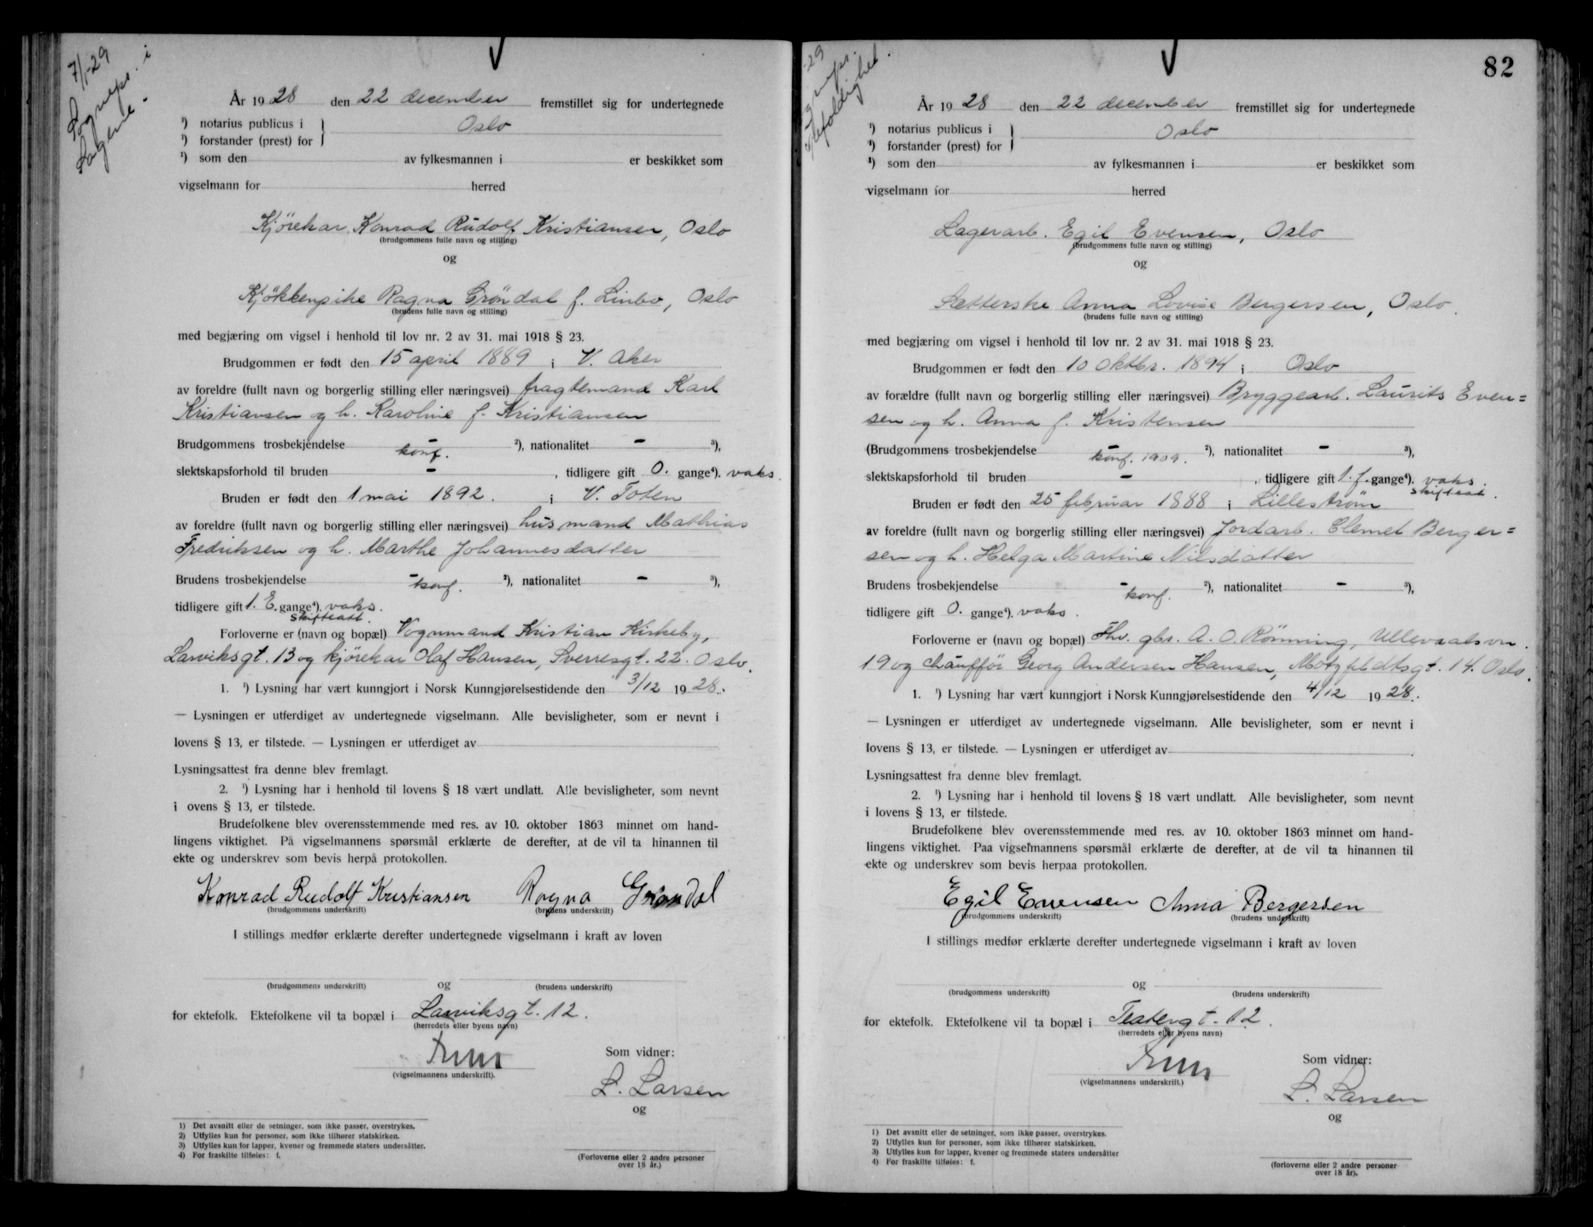 7/1-29
Sogneps. i
År 1928 den 22 december fremstillet sig for undertegnede
¹) notarius publicus i
Oslo
¹) forstander (prest) for
¹) som den av fylkesmannen i er beskikket som
vigselmann for herred
Kjörekar Konrad Rudolf Kristiansen, Oslo
(brudgommens fulle navn og stilling)
og
Kjökkenpike Ragna Gröndal f. Linbo, Oslo
(brudens fulle navn og stilling)
med begjæring om vigsel i henhold til lov nr. 2 av 31. mai 1918 § 23.
Brudgommen er født den 15 april 1889 i V. Aker
av foreldre (fullt navn og borgerlig stilling eller næringsvei) fragtemand Karl
Kristiansen og h. Karoline f. Kristiansen
Brudgommens trosbekjendelse - konf. ²), nationalitet - ³),
slektskapsforhold til bruden - , tidligere gift 0. gange⁴). vaks.
Bruden er født den 1 mai 1892. i V. Toten
av foreldre (fullt navn og borgerlig stilling eller næringsvei) husmand Mathias
Fredriksen og h. Marthe Johannesdatter
Brudens trosbekjendelse - konf. ²), nationalitet - ³),
tidligere gift 1. E. gange⁴). vaks.
skifteatt.
Forloverne er (navn og bopæl) Vognmand Kristian Kirkeby,
Larviksgt. 13 og kjörekar Olaf Hansen, Sverresgt. 22. Oslo.
1. ¹) Lysning har vært kunngjort i Norsk Kunngjørelsestidende den 3/12 1928.
— Lysningen er utferdiget av undertegnede vigselmann. Alle bevisligheter, som er nevnt i
lovens § 13, er tilstede. — Lysningen er utferdiget av
Lysningsattest fra denne blev fremlagt.
2. ¹) Lysning har i henhold til lovens § 18 vært undlatt. Alle bevisligheter, som nevnt
i ovens § 13, er tilstede.
Brudefolkene blev overensstemmende med res. av 10. oktober 1863 minnet om hand-
lingens viktighet. På vigselmannens spørsmål erklærte de derefter, at de vil ta hinannen til
ekte og underskrev som bevis herpå protokollen.
Konrad Rudolf Kristiansen Ragna Grøndal
(brudgommens underskrift) (brudens underskrift)
I stillings medfør erklærte derefter undertegnede vigselmann i kraft av loven
og
(brudgommens underskrift) (brudens underskrift)
for ektefolk. Ektefolkene vil ta bopæl i Larviksgt. 12.
(herredets eller byens navn)
(vigselmannens underskrift).
Som vidner:
L. Larsen
og
1) Det avsnitt eller de setninger, som ikke passer, overstrykes.
2) Utfylles kun for personer, som ikke tilhører statskirken.
3) Utfylles kun for lapper, kvener og fremmede staters undersåtter.
4) For fraskilte tilføies: f.
(Forloverne eller 2 andre personer
over 18 år.)
82
-29
År 1928 den 22 december fremstillet sig for undertegnede
¹) notarius publicus i
Oslo
¹) forstander (prest) for
¹) som den av fylkesmannen i er beskikket som
vigselmann for herred
Lagerarb. Egil Evensen, Oslo
(brudgommens fulle navn og stilling)
og
Sætterske Anna Lovise Bergersen, Oslo.
(brudens fulle navn og stilling)
med begjæring om vigsel i henhold til lov nr. 2 av 31. mai 1918 § 23.
Brudgommen er født den 10 oktbr. 1894 i Oslo
av forældre (fullt navn og borgerlig stilling eller næringsvei) Bryggearb. Laurits Even=
sen og h. Anna f. Kristensen
(Brudgommens trosbekjendelse - konf. 1909. ²), nationalitet - ³),
slektskapsforhold til bruden - , tidligere gift 1. f. gange⁴). vaks.
skifteatt.
Bruden er født den 25 februar 1888 i Lilleström
av foreldre (fullt navn og borgerlig stilling eller næringsvei) Jordarb. Clemet Berger=
sen og h. Helga Martine Nilsdatter
Brudens trosbekjendelse - konf. ²), nationalitet - ³),
tidligere gift 0. gange⁴). vaks.
Forloverne er (navn og bopæl) Fhv. gbr. A. O. Rönning, Ullevaalsvn.
19 og chaufför Georg Andersen Hansen, Motzfeldtsgt. 14. Oslo.
1. ¹) Lysning har vært kunngjort i Norsk Kunngjørelsestidende den 4/12 1928.
— Lysningen er utferdiget av undertegnede vigselmann. Alle bevisligheter, som er nevnt i
lovens § 13, er tilstede. — Lysningen er utferdiget av
Lysningsattest fra denne blev fremlagt.
2. ¹) Lysning har i henhold til lovens § 18 vært undlatt. Alle bevisligheter, som nevnt
i lovens § 13, er tilstede.
Brudefolkene blev overensstemmende med res. av 10. oktober 1863 minnet om hand-
lingens viktighet. Paa vigselmannens spørsmål erklærte de derefter, at de vil ta hinannen til
ekte og underskrev som bevis herpaa protokollen.
Egil Evensen Anna Bergersen
(brudgommens underskrift) (brudens underskrift)
I stillings medfør erklærte derefter undertegnede vigselmann i kraft av loven
og
(brudgommens underskrift) (brudens underskrift)
for ektefolk. Ektefolkene vil ta bopæl i Teatergt. 12.
(herredets eller byens navn)
(vigselmannens underskrift.)
Som vidner:
L. Larsen
og
1) Det avsnitt eller de setninger, som ikke passer, overstrykes.
2) Utfylles kun for personer, som ikke tilhører statskirken.
3) Utfylles kun for lapper, kvener og fremmede staters undersåtter
4) For fraskilte tilføies: f.
(forloverne eller 2 andre personer
over 18 år).